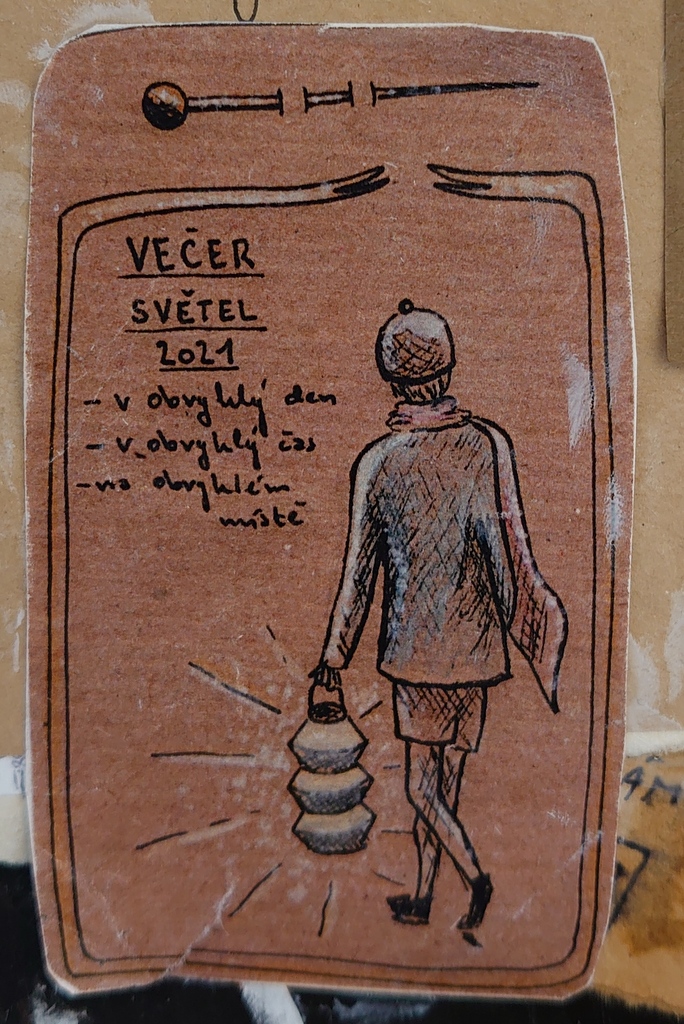 VEČER
SVĚTEL
2021
- v obvyklý den
- v obvyklý čas
- na obvyklém
místě
4M